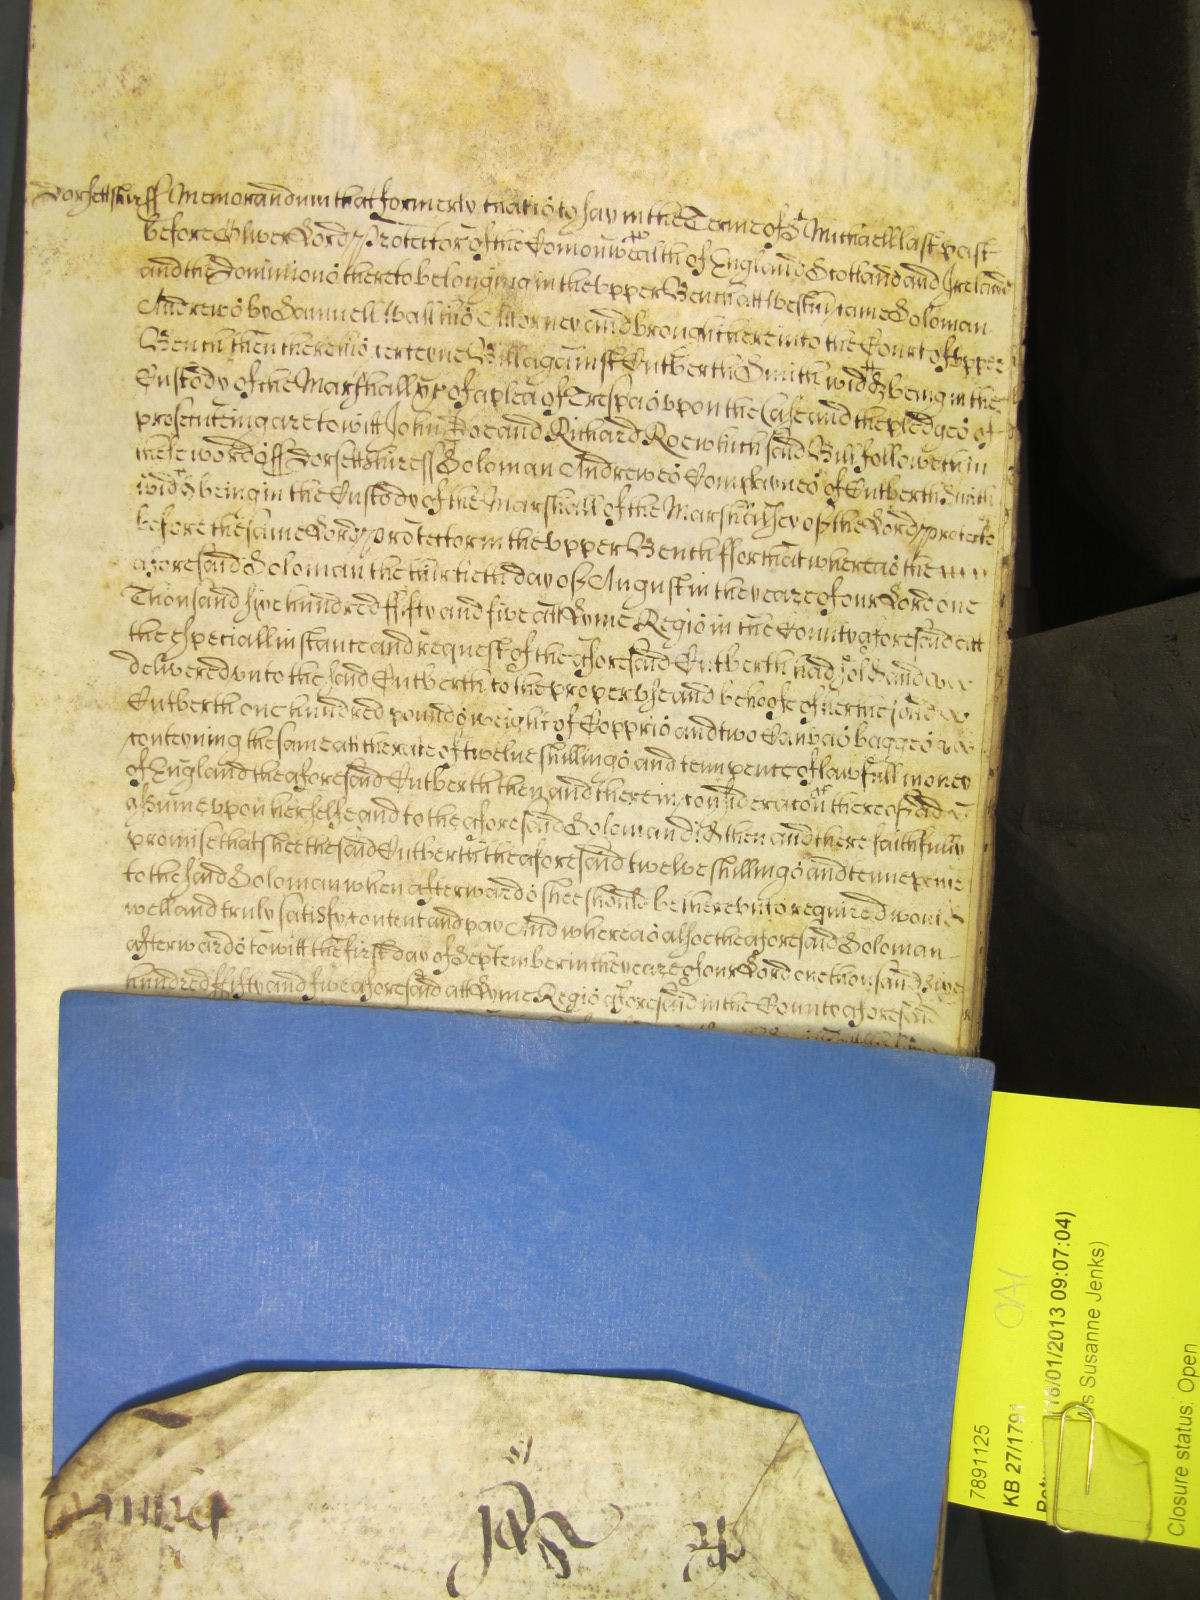 Dorsettshire ss Memorandum that formerly that is to say in the Terme of St Michaell last past
before Oliver Lord Protector of the Comonwealth of England Scotland and Ireland
and the Dominions thereto belonging in the Upper Bench att Westm came Soloman
Andrewes by Samuell Wall his Attorney and brought here into the Court of Upper
Bench then there his certeyne Bill against Cutberth Smith widd being in the
Custody of the Marshall &c of a plea of Trespas upon the Case and the pledges of
prosecuteing are to witt John Doe and Richard Roe which said Bill followeth in
these words ss Dorsettshire ss Soloman Andrewes Complaynes of Cutberth Smith
widd being in the Custody of the Marshall of the Marshalsey of the Lord Protector
before the same Lord Protector in the Upper Bench ffor that whereas the
aforesaid Soloman the thirtieth day of August in the yeare of our Lord one
Thousand sixe hundred ffifty and five att Lyme Regis in the County aforesaid att
the especiall instance and request of the aforesaid Cutberth had sold and
delivered unto the said Cutberth to the proper use and behoofe of her the said
Cutberth one hundred pounds weight of Coppris and two Canvas bagges
conteyning the same att the rate of twelve shillings and tenn pence of lawfull money
of England the aforesaid Cutberth then and there in consideracon thereof did
assume upon her selfe and to the aforesaid Soloman did then and there faithfully
promise that shee the said Cutberth the aforesaid twelve shillings and tenne pence
to the said Soloman when afterwards shee should be thereunto required would
well and truly satisfy content and pay And whereas alsoe the aforesaid Soloman
afterwards to witt the first day of September in the yeare of our Lord one thousand sixe
hundred ffifty and five aforesaid att Lyme Regis aforesaid in the County aforesaid
7891125
KB 27/1791
16/01/2013 09:07:04)
Susanne Jenks)
Closure status: Open